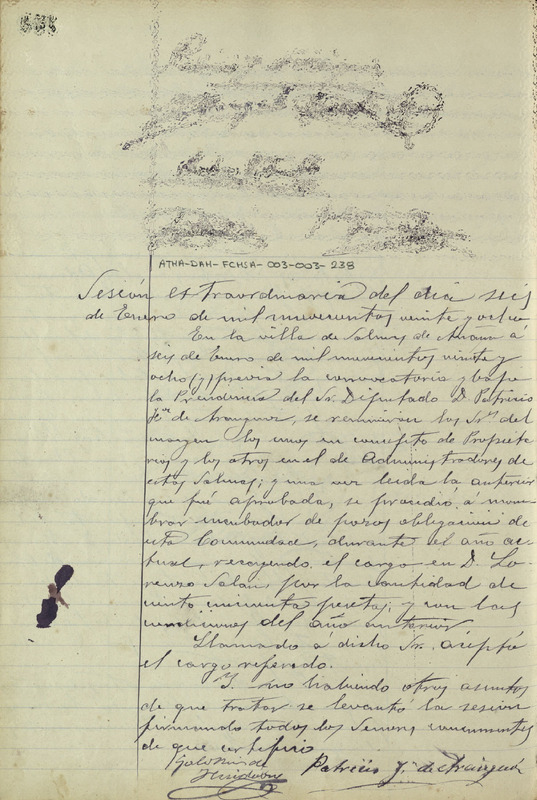 ATHA-DAH-FCHSA-003-003-238
Sesión extraordinaria del día seis
de Enero de mil novecientos veinte y ocho
En la villa de Salinas de Añana á
seis de Enero de mil novecientos veinte y
ocho (y) previa la convocatoria y bajo
la Presidencia del Sr. Diputado D. Patricio
de Aranguren, se reunieron los Sres del
margen los unos en concepto de Propieta
rios y los otros en el de Administradores de
estas Salinas; y una vez leida la anterior
que fué aprobada, se procedió á nom
brar incubador de pozos obligación de
esta Comunidad, durante el año ac-
tual, recayendo el cargo en D. Lo-
renzo Salan, por la cantidad de
ciento cincuenta pesetas; y con las
condiciones del año anterior
Llamado á dicho Sr. aceptó
el cargo referido.
Y no habiendo otros asuntos
de que tratar se levantó la sesion
firmando todos los Señores concurrentes
de que certifico
Patricio J. de Aranguren